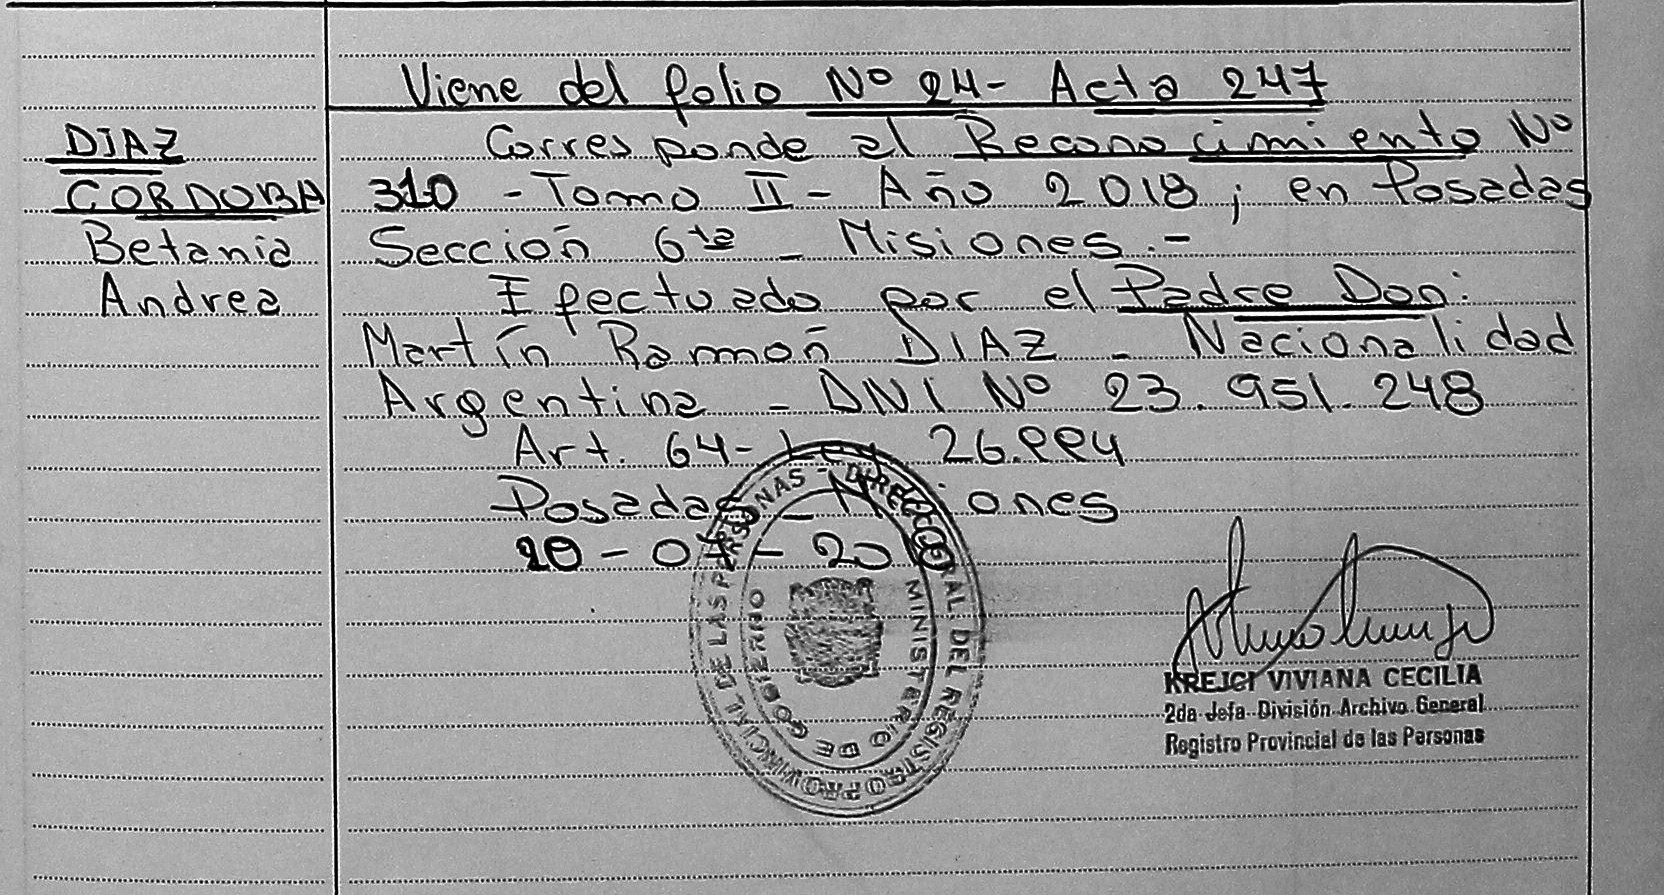 Viene del folio Nº 24- Acta 247
DIAZ
CORDOBA
Betania
Andrea
Corresponde al Reconocimiento Nº
310 - Tomo II - Año 2018; en Posadas
Sección 6ta - Misiones.-
Efectuado por el Padre Don:
Martín Ramón DIAZ - Nacionalidad
Argentina - DNI Nº 23.951.248
Art. 64- Ley 26.994
Posadas - Misiones
DIRECC. GRAL DEL REGISTRO PROVINCIAL DE LAS PERSONAS -
MINISTERIO DE GOBIERNO
KREJCI VIVIANA CECILIA
2da Jefa División Archivo General
Registro Provincial de las Personas